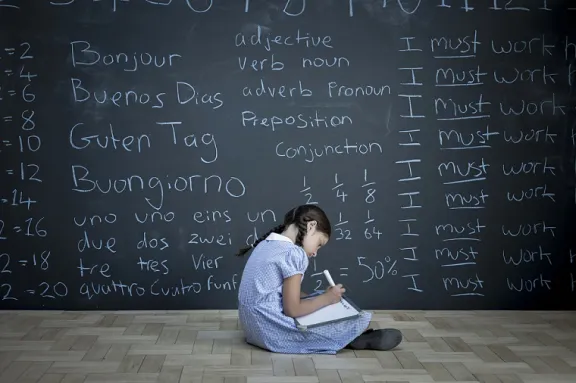 = 2
= 4
= 6
= 8
= 10
= 12
= 14
2 = 16
2 = 18
2 = 20
Bonjour
Buenos Dias
Guten Tag
Buongiorno
uno uno eins un
due dos zwei
tre tres Vier
quattro
adjective
verb noun
adverb Pronoun
Preposition
Conjunction
1/2 1/4 1/8
1/32 1/64
= 50%
I must work
I must work
I must work
I must work
I must work
I must work
I must work
I must work
I must work